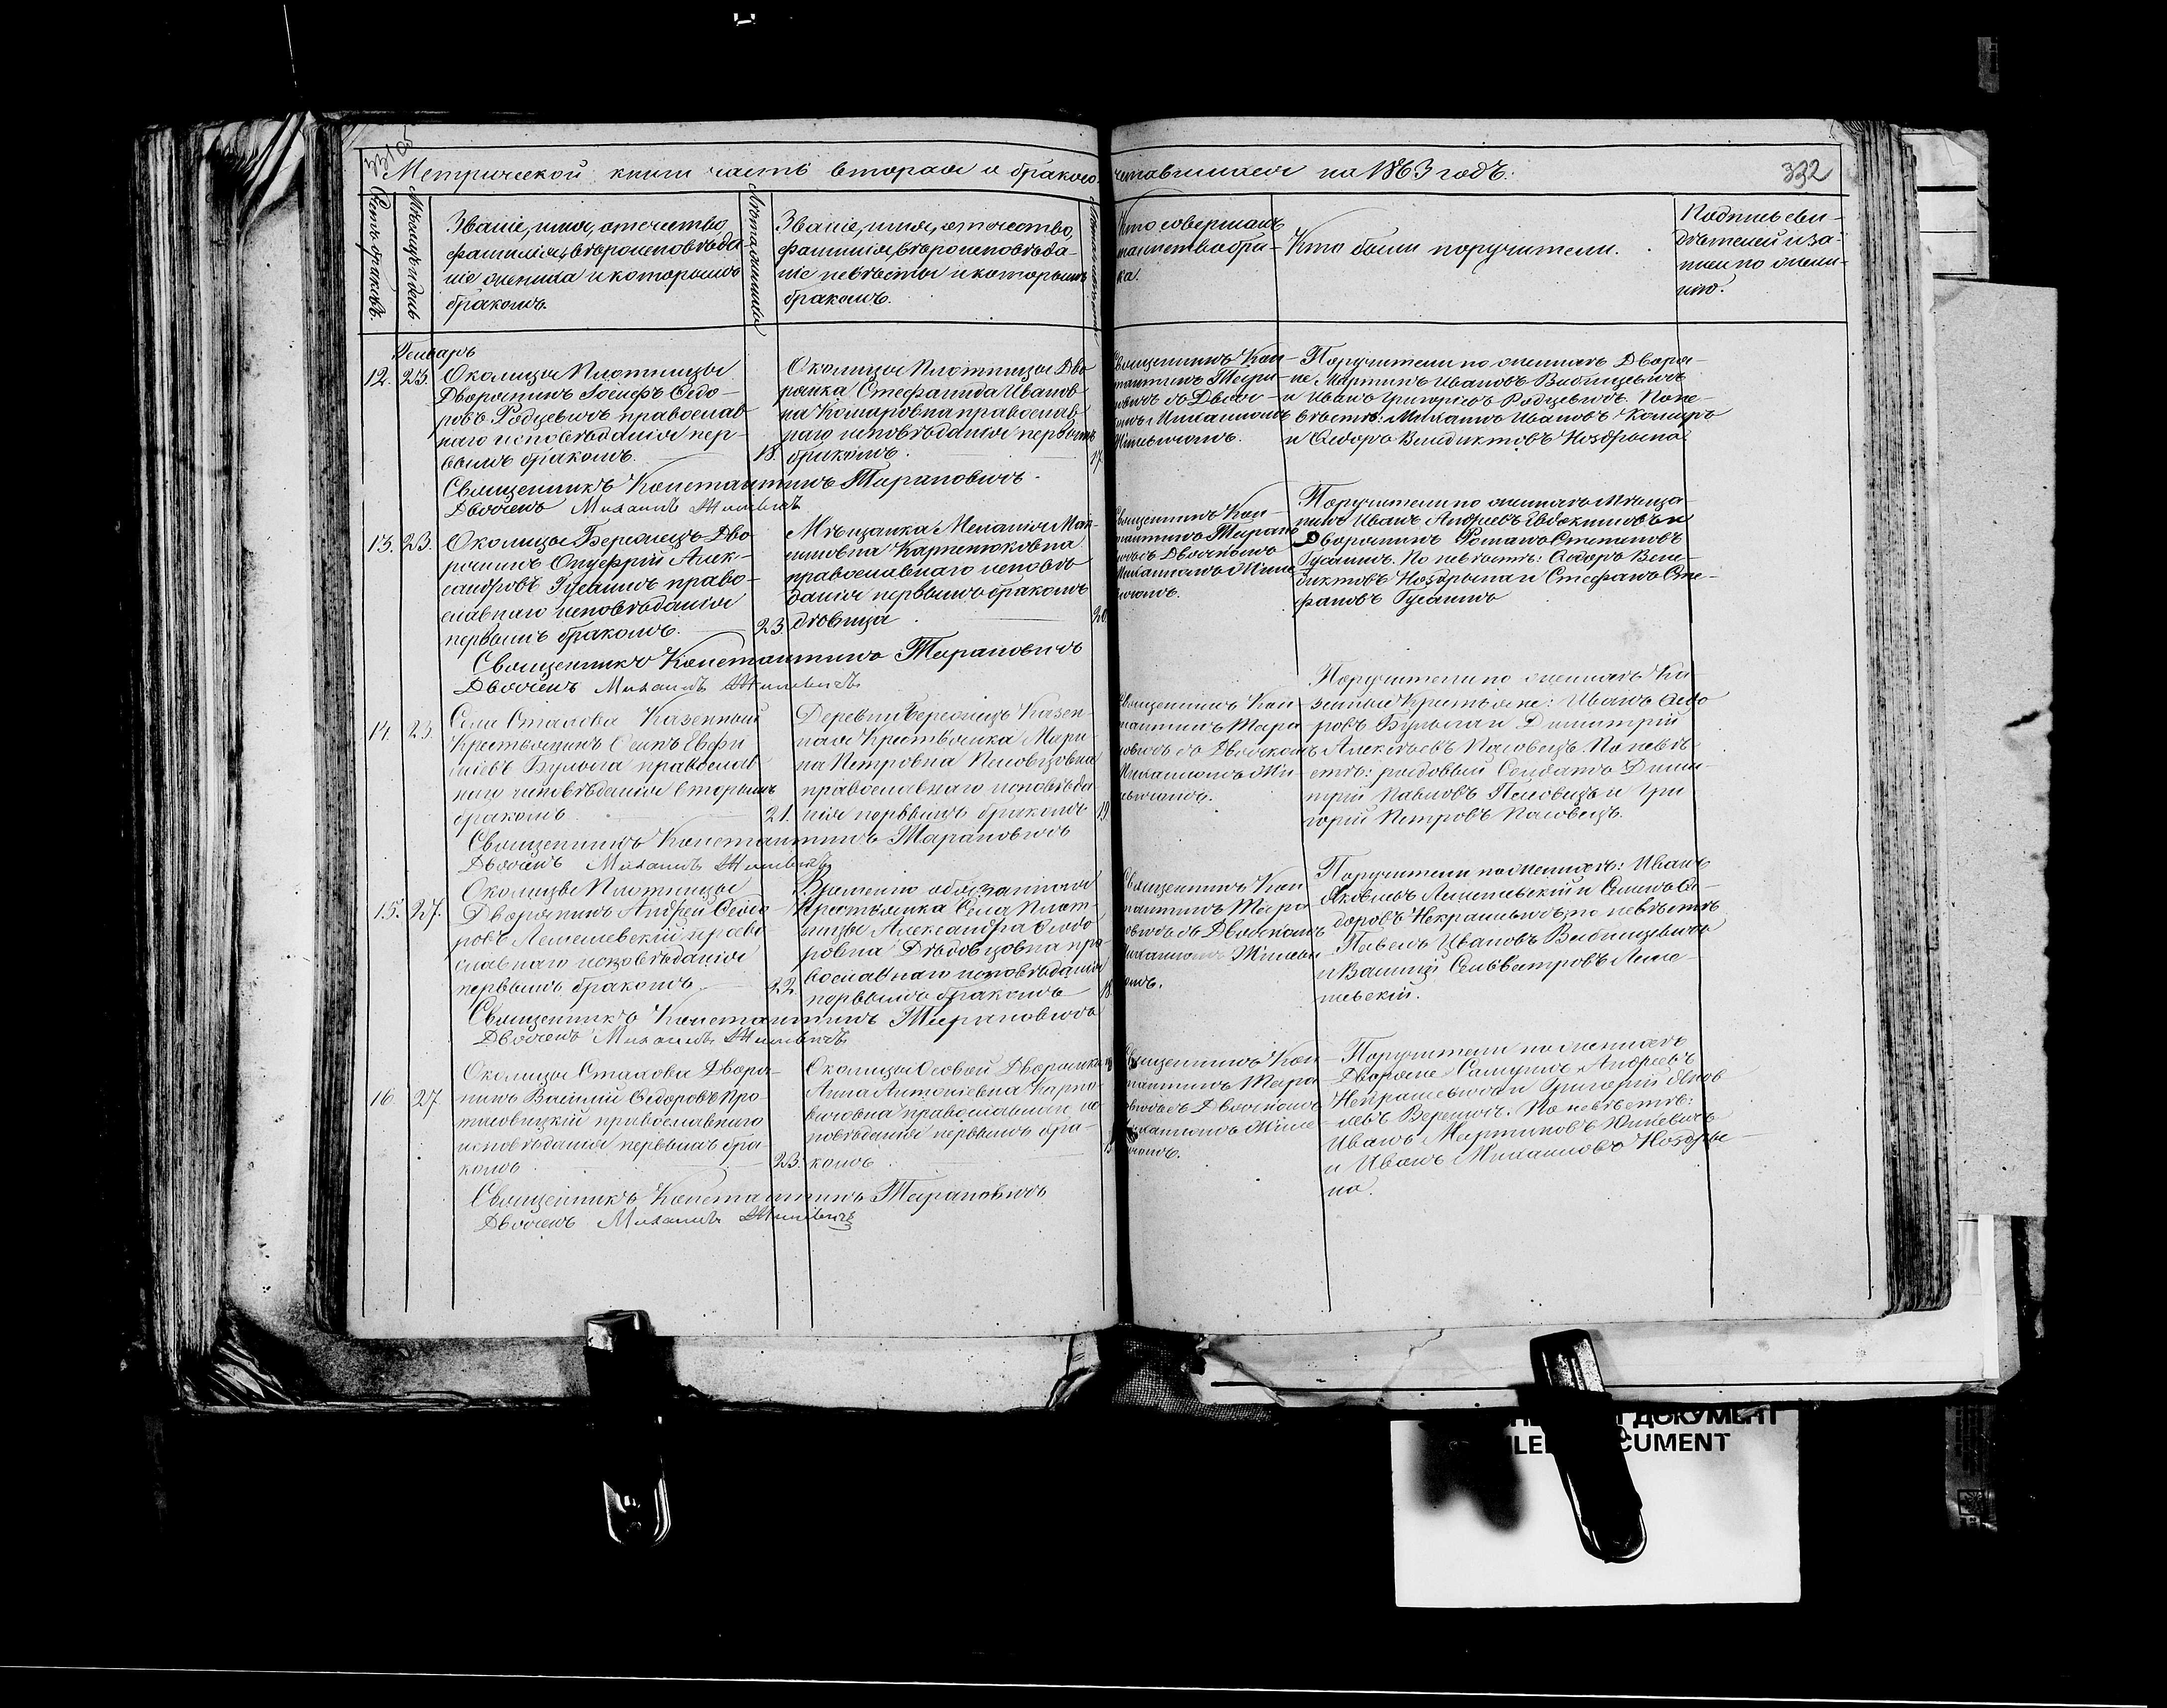 Метрической книги часть вторая о бракосо-
четавшихся на 1863 годъ.
332
Счетъ браковъ.
Мѣсяцъ и день.
Званіе, имя, отечество,
фамилія, вѣроисповѣда-
ніе жениха и которымъ
бракомъ.
Лѣта жениха
Званіе, имя, отечество,
фамилія, вѣроисповѣда-
ніе невѣсты и которымъ
бракомъ.
Кто совершалъ
таинство бра-
ка.
Кто были поручители.
Подпись сви-
дѣтелей и за-
писи по жела-
нію.
Январь
12. 23. Околицы Плотницы
Дворянинъ Іосифъ Ѳедо-
ровъ Родцевичъ православ
наго исповѣданія пер-
вымъ бракомъ. 18.
Околицы Плотницы Дво
рянка Стефанида Иванов
на Комаровна православ
наго исповѣданія первымъ
бракомъ. 17.
Священникъ Кон-
стантинъ Тара-
новичъ съ Дьяч-
Михаиломъ
Поручители по женихѣ Дворя-
не Мартинъ Ивановъ Выбницевичъ
и Иванъ Григорьевъ Родцевичъ. По не-
вѣстѣ: Михаилъ Ивановъ Комаръ
и Ѳедоръ Венедиктовъ Ноздрына
Священникъ Константинъ Тарановичъ.
Дьячекъ Михаилъ
13. 23. Околицы Бережецъ Дво-
рянинъ Онуфрій Алек-
сандровъ Гусаимъ право-
славнаго исповѣданія
первымъ бракомъ. 23.
Мѣщанка Меланія Мак-
имовна Карпенюковна
православнаго исповѣ
данія первымъ бракомъ
дѣвица 20.
Священникъ Кон-
стантинъ Таран
съ Дьячкомъ
Михаиломъ
Поручители по женихѣ Мѣща-
нинъ Иванъ Андреевъ Евдокимовъ и
Дворянинъ Романъ Степановъ
Гусаимъ. По невѣстѣ: Ѳедоръ Вене-
диктовъ Ноздрына и Стефанъ Сте-
фановъ Гусаимъ
Священникъ Константинъ Тарановичъ
Дьячекъ Михаилъ
14. 23. Села Стахова Казенный
Крестьянинъ Осипъ Евфи
міевъ Булыга православ
наго исповѣданія вторымъ
бракомъ 21.
Деревни Бережецъ Казен-
ная Крестьянка Мари-
на Петровна
православнаго исповѣда
нія первымъ бракомъ 19.
Священникъ Кон
стантинъ Тара
новичъ съ Дьячкомъ
Михаиломъ
Поручители по женихѣ Ка
зенные Крестьяне: Иванъ Ѳедо
ровъ Булыга и Димитрій
Алексѣевъ Пасовецъ. По невѣ
стѣ: рядовый Солдатъ Дими-
трій Павловъ и Гри
горій Петровъ Пасовецъ.
Священникъ Константинъ Тарановичъ
Дьячекъ Михаилъ
15. 27. Околицы Плотницы
Дворянинъ Андрей Ѳедо
ровъ Лемешевскій право-
славнаго исповѣданія
первымъ бракомъ 22.
Временно обязанная
Крестьянка Села Плот-
ницы Александра Ѳедо
ровна Дѣдовцовна пра-
вославнаго исповѣданія
первымъ бракомъ 18.
Священникъ Кон
стантинъ Тара
новичъ съ Дьячкомъ
Михаиломъ
Поручители по женихѣ: Иванъ
Яковлевъ Лемешевскій и Семенъ Ѳе-
доровъ Некрашевичъ, по невѣстѣ
Павелъ Ивановъ Выбницевичъ
и Василій Сильвестровъ Леме-
шевскій.
Священникъ Константинъ Тарановичъ
Дьячекъ Михаилъ
16. 27. Околицы Стахова Дворя-
нинъ Василій Ѳедоровъ Про-
тасовицкій православнаго
исповѣданія первымъ бра
комъ 23.
Околицы Осовой Дворянка
Анна Антоніевна Карпо-
вичовна православнаго ис
повѣданія первымъ бра-
комъ
Священникъ Кон
стантинъ Тара
новичъ съ Дьячкомъ
Михаиломъ
Поручители по женихѣ
Дворяне Самуилъ Андреевъ
Некрашевичъ и Григорій Яков
левъ Веренич. По невѣстѣ:
Иванъ Мартиновъ Юшкевичъ
и Иванъ Михаиловъ Ноздры-
на.
Священникъ Константинъ Тарановичъ
Дьячекъ Михаилъ
ДОКУМЕНТ
CUMENT